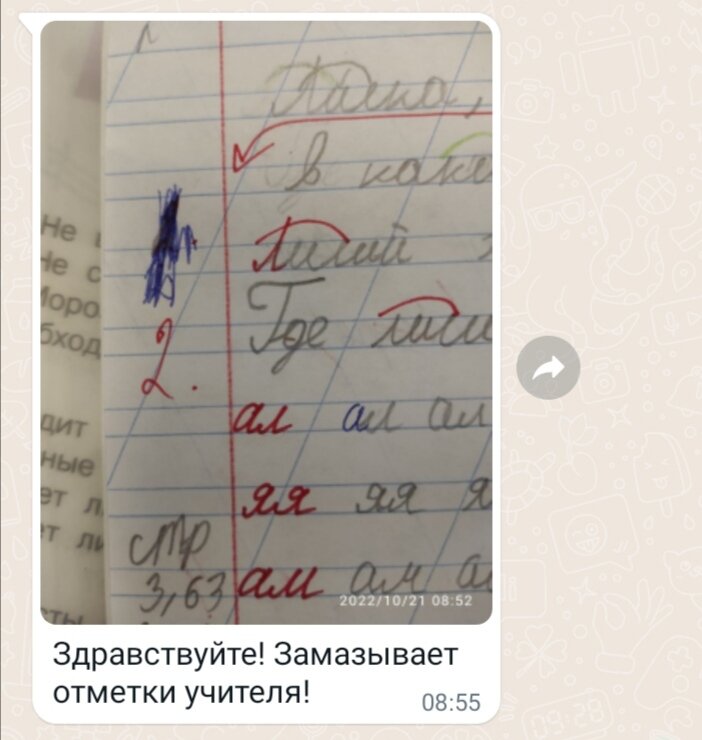 Не
Не с
Моро
бход
дит
ные
ет л
т ли
сты
в как
Лисий
Где лиси
2.
ал ал ал
яя яя я
стр
3,63 ам ам а
2022/10/21 08:52
Здравствуйте! Замазывает
отметки учителя!
08:55